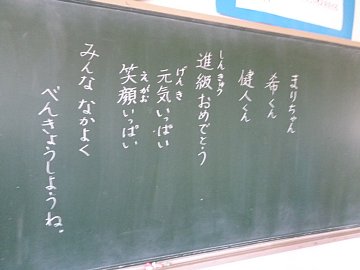 まりちゃん
希くん
健人くん
進級おめでとう
しんきゅう
元気いっぱい
げんき
笑顔いっぱい
えがお
みんな なかよく
べんきょうしようね。